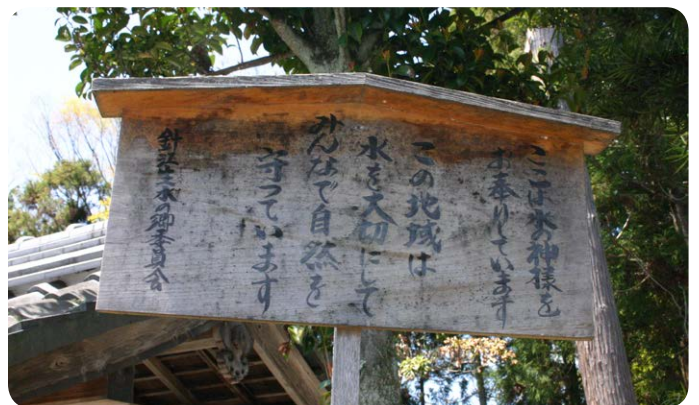 ここは水の神様を
お奉りしています
この地域は
水を大切にして
みんなで自然を
守っています
針江生水の郷委員会